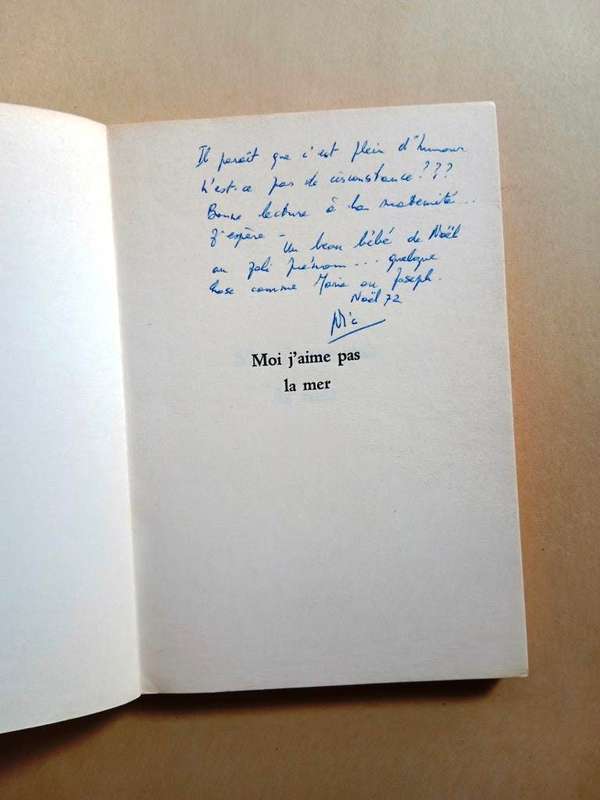 Il paraît que c'est plein d'humour
n'est-ce pas de circonstance ???
Bonne lecture à la maternité...
J'espère - Un beau bébé de Noël
au joli prénom... quelque
chose comme Marie ou Joseph.
Noël 72
Nic
Moi j'aime pas
la mer